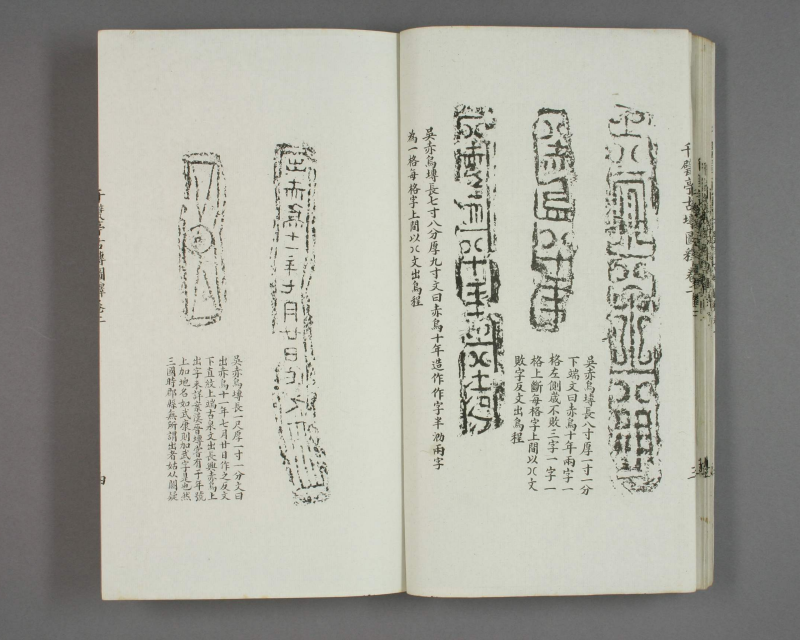 千甓亭古塼圖釋卷二
吳赤烏塼長八寸厚一寸一分
下端文曰赤烏十年兩字一
格左側歲不敗三字一字一
格上斷每格字上閒以八文
敗字反文出烏程
吳赤烏塼長七寸八分厚九寸文曰赤烏十年造作作字半泐兩字
為一格每格字上閒以八文出烏程
出赤烏十一年七月廿日作
吳赤烏塼長一尺厚一寸一分文曰
出赤烏十一年七月廿日作之反文
下直紋上端古泉文出長興赤烏上
出字未詳
上加地名如武康則加武字是也然
三國時郡縣無所謂出者姑从闕疑
四